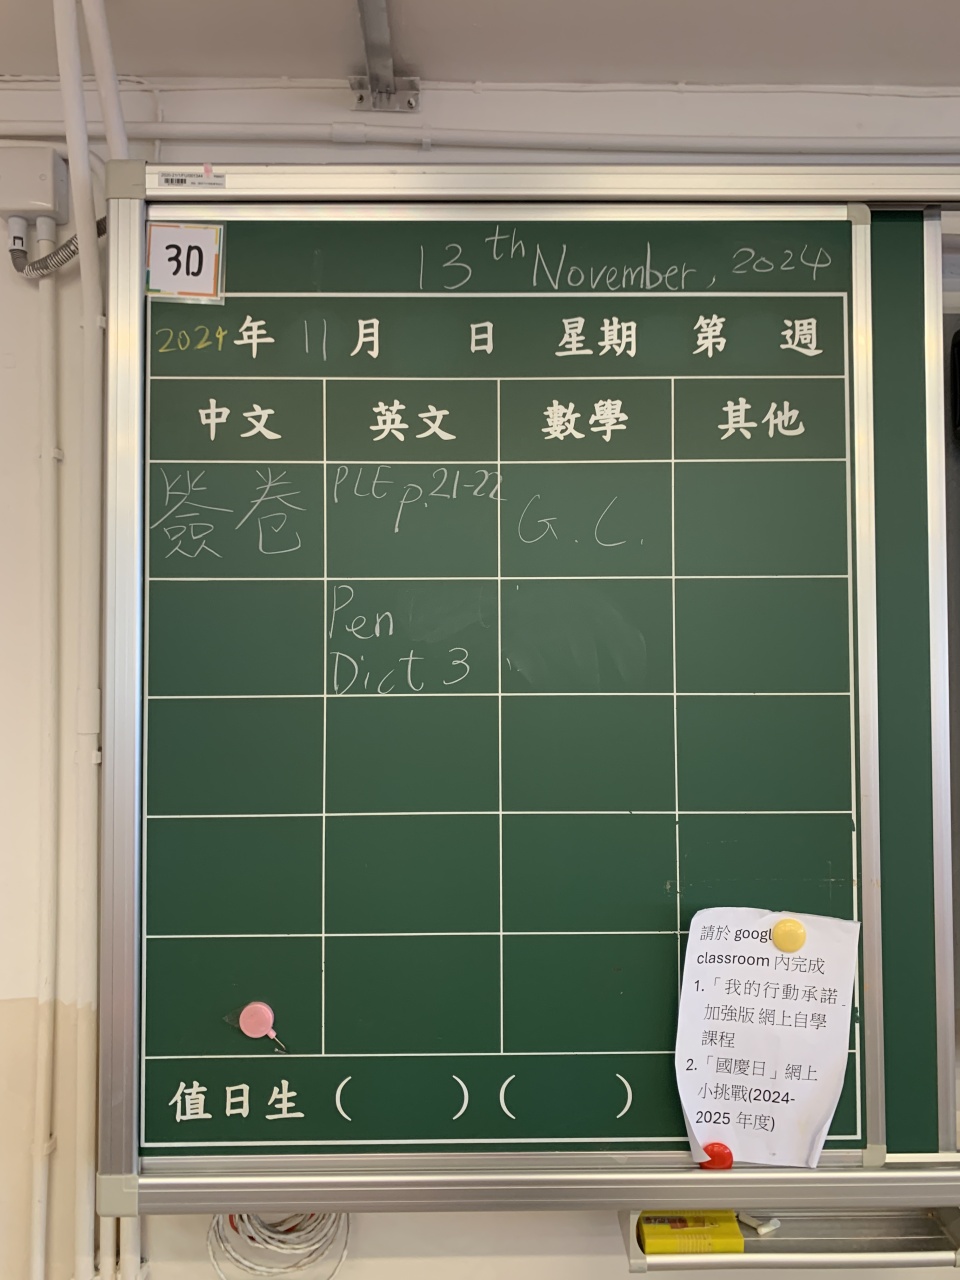 3D
13th November, 2024
2024年 11月 日 星期 第 週
中文 英文 數學 其他
簽卷 PLE p.21-22 G.C.
Pen
Dict 3
值日生( )( )
請於 googl
classroom 內完成
1.「我的行動承諾
加強版 網上自學
課程
2.「國慶日」網上
小挑戰(2024-
2025 年度)